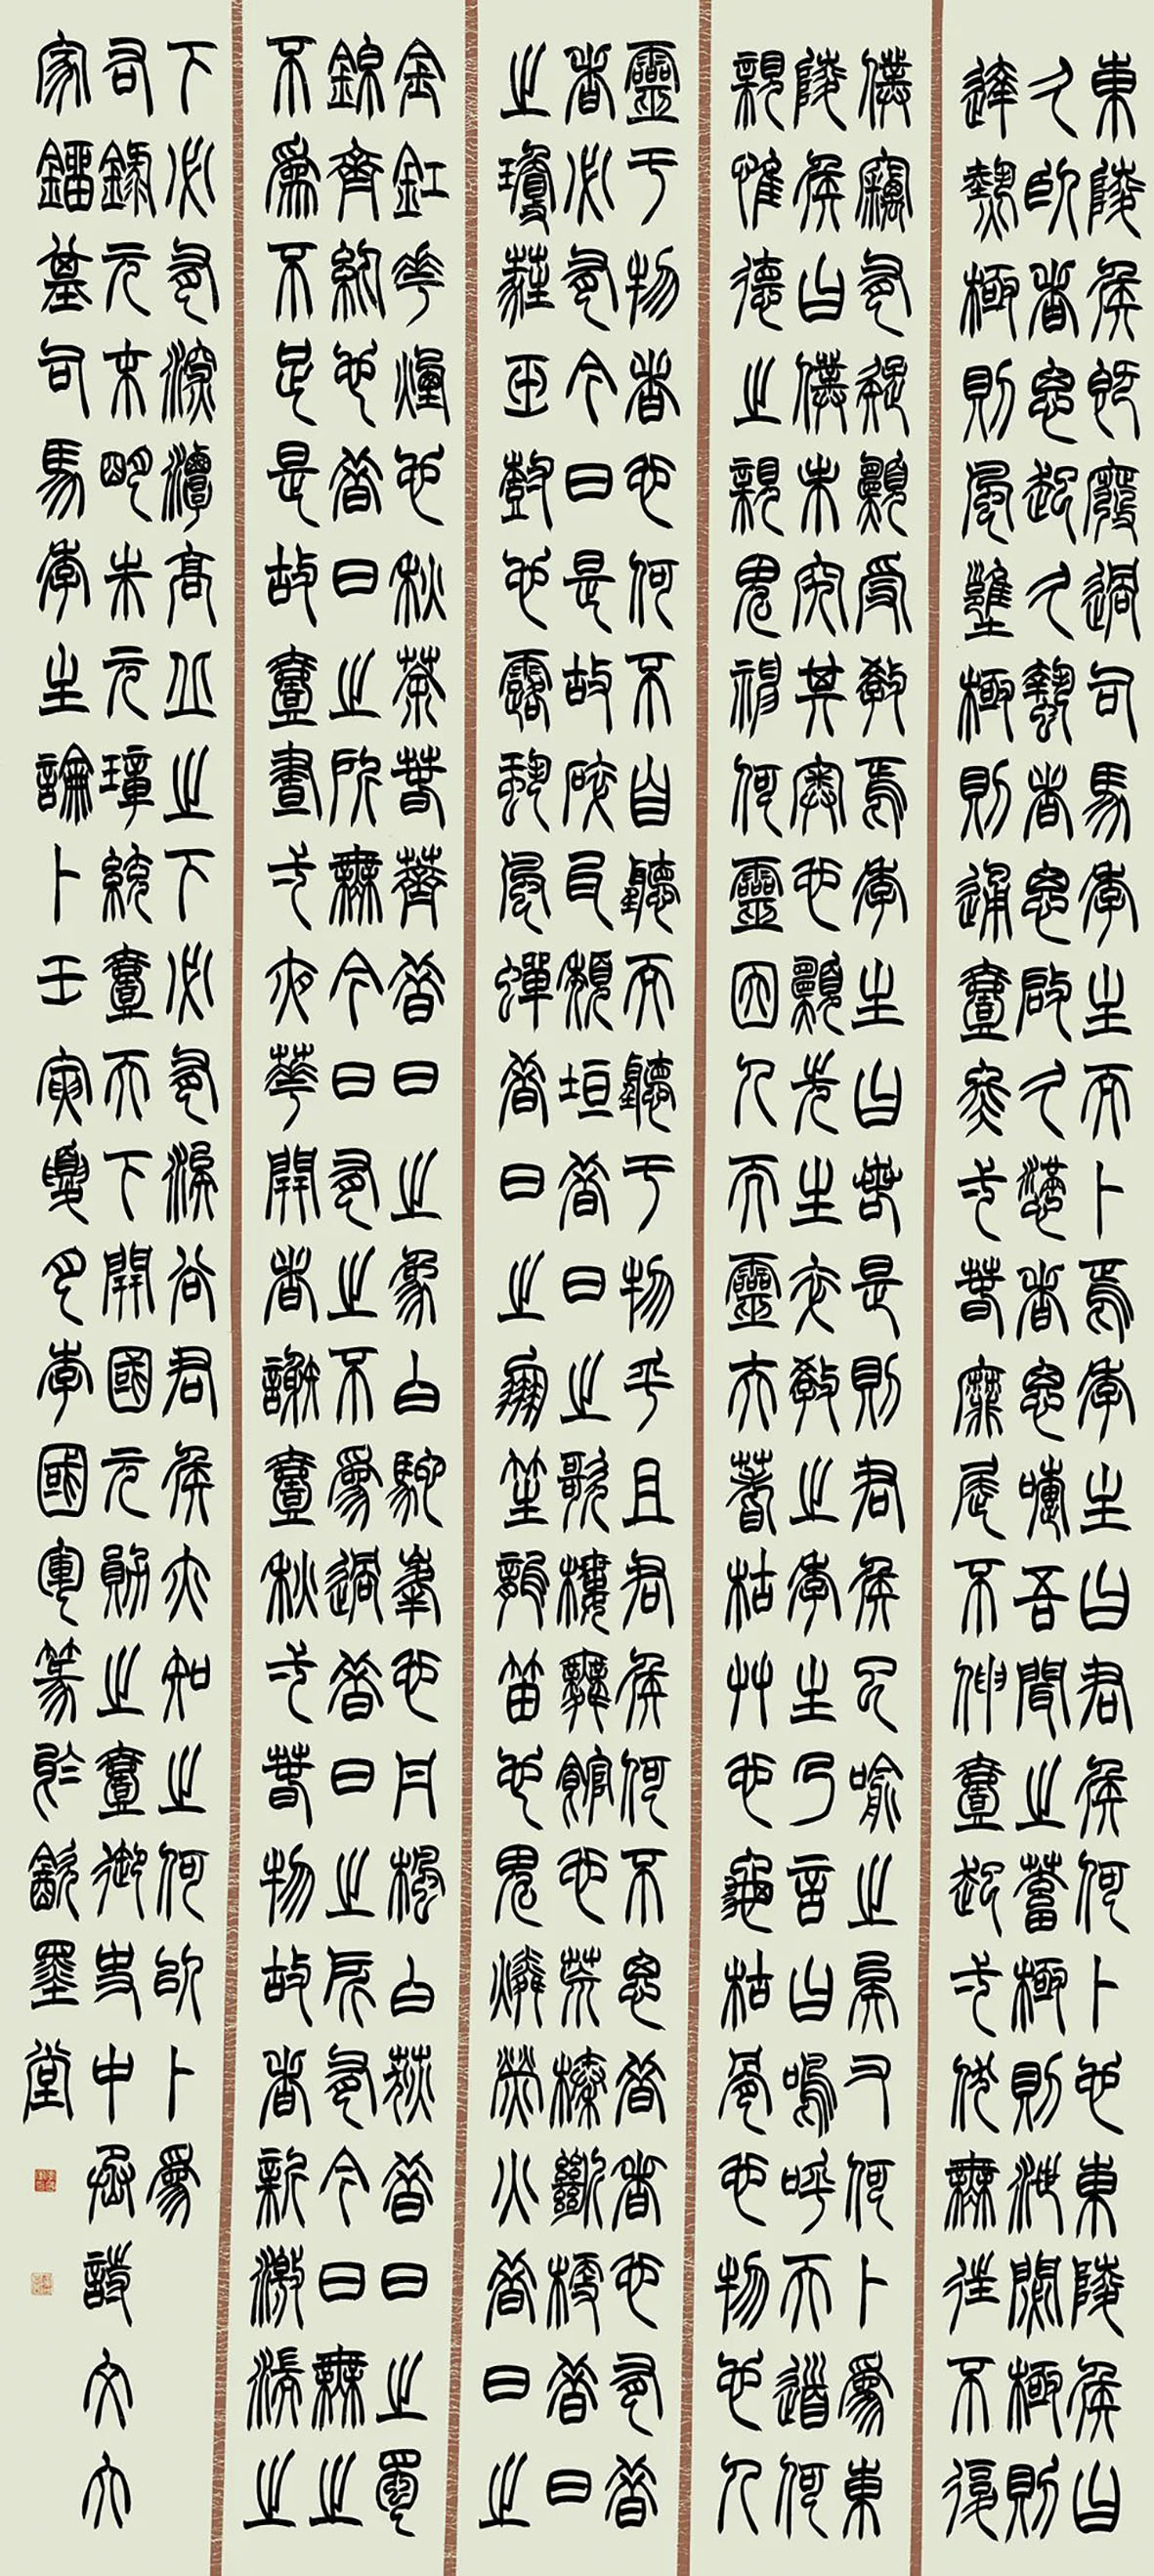 東陵侯既廢過司馬季主而卜焉季主曰君侯何卜也東陵侯曰
久臥者思起久蟄者思啟久懣者思嚏吾聞之蓄極則泄閟極則
達熱極則風壅極則通壹冬弌春靡屈不伸壹起弌伏無往不復
僕竊有疑願受教焉季主曰若是則君侯已喻之矣又何卜為東
陵侯曰僕未究其奧也願先生卒教之季主乃言曰嗚呼天道何
親惟德之親鬼神何靈因人而靈夫蓍枯艸也龜枯骨也物也人
靈于物者也何不自聽而聽于物乎且君侯何不思昔者也有昔
者必有今日是故碎瓦頹垣昔日之歌樓舞館也荒榛斷梗昔日
之瓊蕤玉樹也露蛬風蟬昔日之鳳笙龍笛也鬼燐螢火昔日之
金釭華燭也秋荼春薺昔日之象白駝峯也丹楓白荻昔日之蜀
錦齊紈也昔日之所無今日有之不為過昔日之所有今日無之
不為不足是故壹晝弌夜華開者謝壹秋弌春物故者新激湍之
下必有深潭高丘之下必有浚谷君侯亦知之何以卜為
右錄元末明朱元璋統壹天下開國元勳之壹御史中丞文大
家劉基司馬季主論卜壬寅夏月李國運篆於墨堂